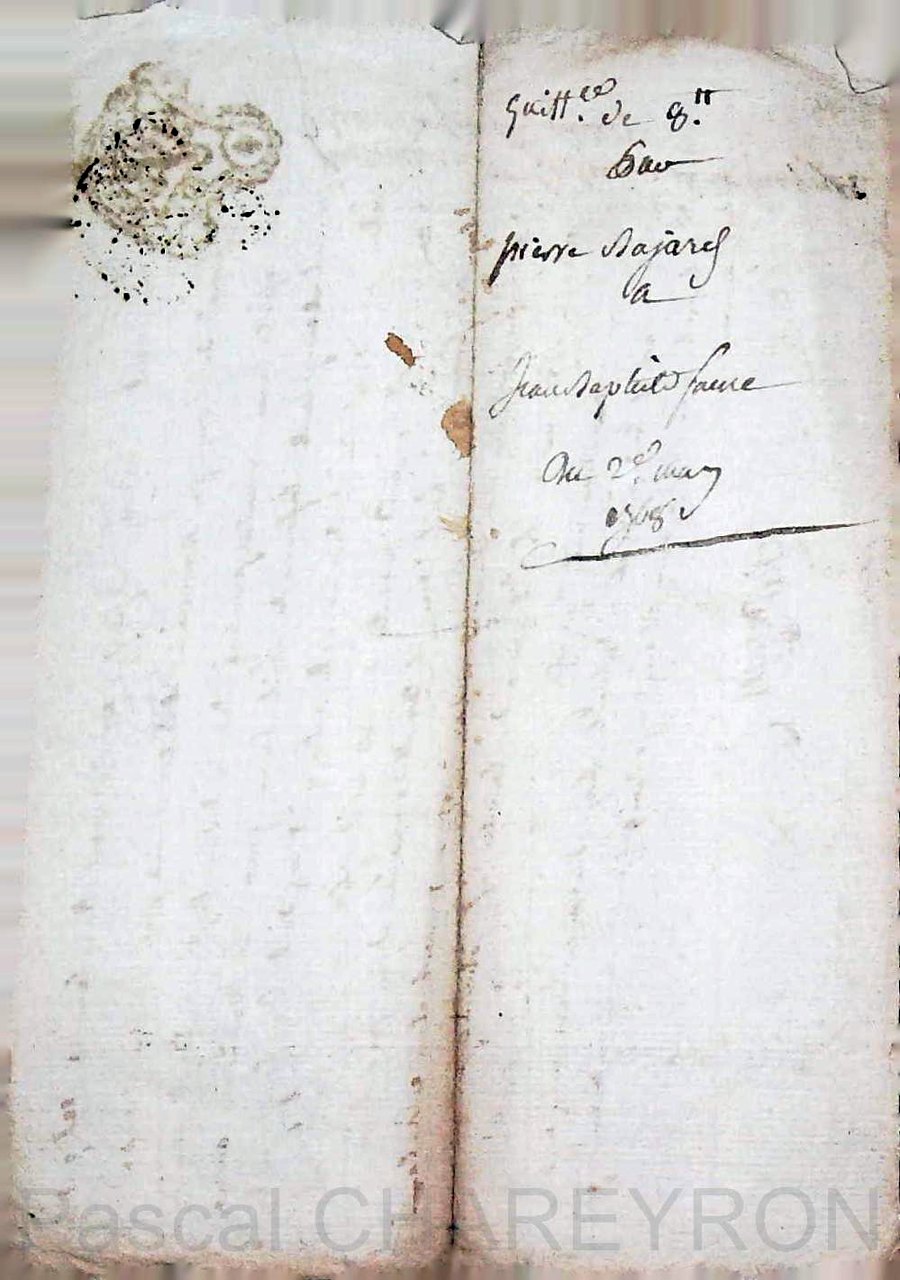 Quitt.ce de 8.tt
Par
pierre
a
Jean Baptiste faure
Du 2e. may
1768
Pascal CHAREYRON